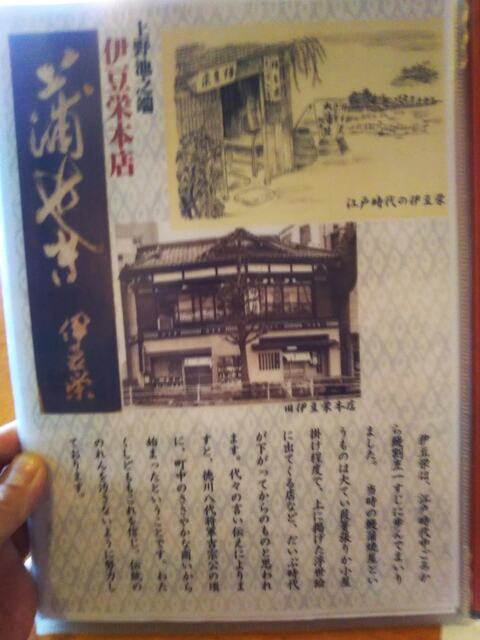 上野池之端
伊豆栄本店
蒲焼
伊豆栄
江戸時代の伊豆栄
旧伊豆栄本店
伊豆栄は、江戸時代中ごろか
ら鰻割烹一すじに歩んでまいり
ました。当時の鰻蒲焼屋とい
うものは大てい葭簀張りか小屋
掛け程度で、上に掲げた浮世絵
に出てくる店など、だいぶ時代
が下がってからのものと思われ
ます。代々の言い伝えによりま
すと、徳川八代将軍吉宗公の頃
に、町中のささやかな商いから
始まったということです。わた
くしどもはこれを信じ、伝統の
のれんを汚さないように努力し
ております。